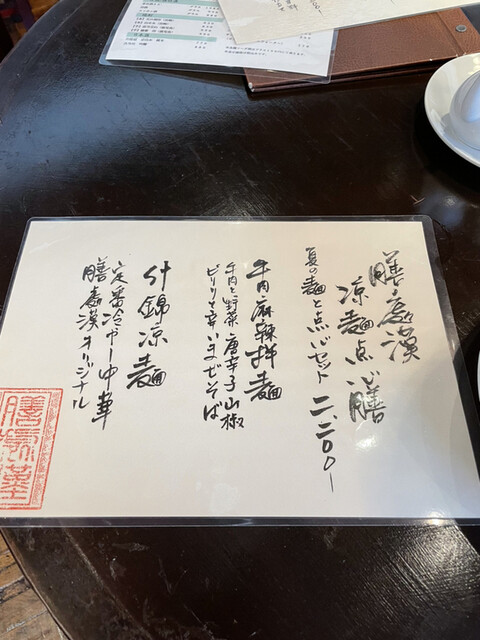 膳處漢
涼麺点心膳
夏の麺と点心セット 二、二〇〇ー
牛肉麻辣拌麺
牛肉と野菜 唐辛子 山椒
ピリリと辛いまぜそば
什錦涼麺
定番冷やし中華
膳處漢オリジナル
膳處漢